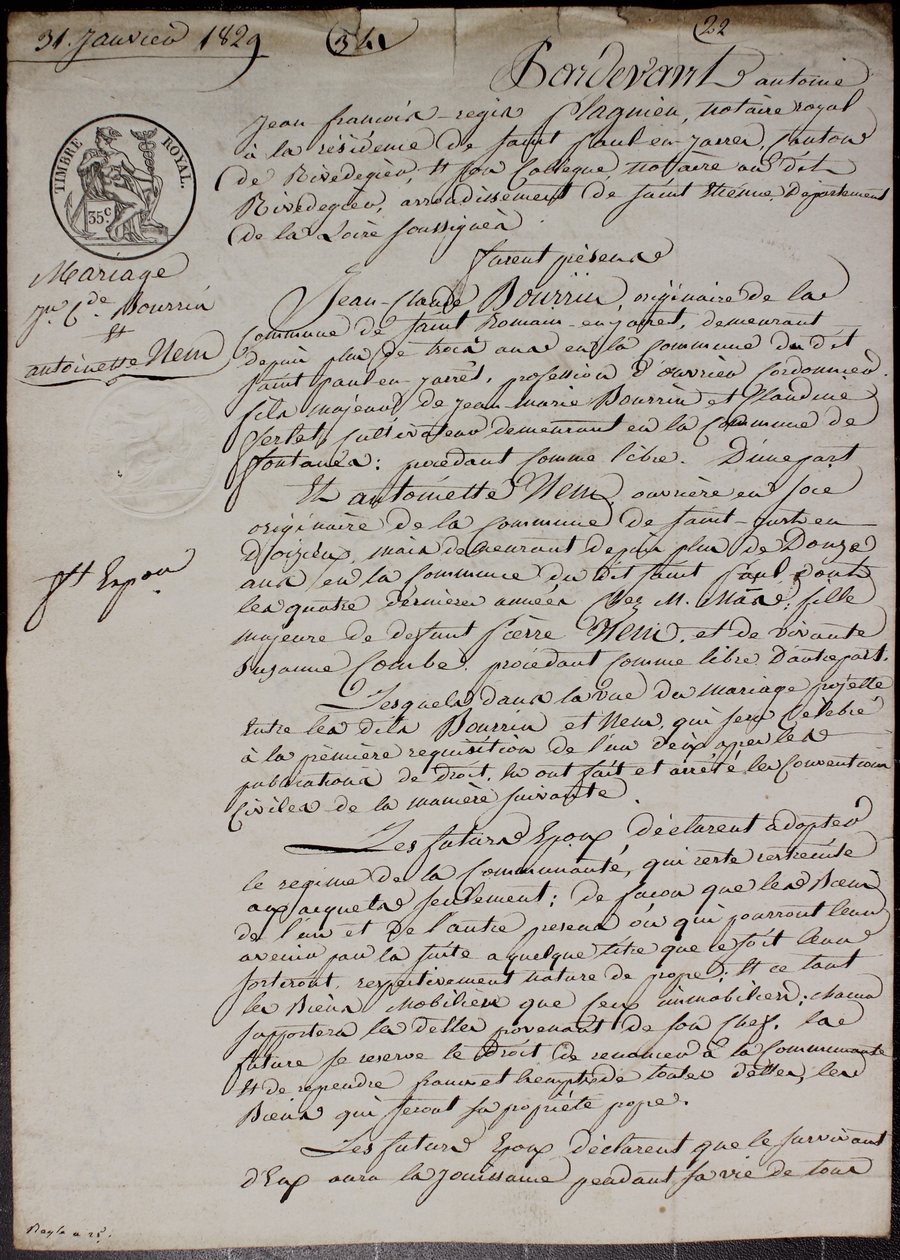 31. Janvier 1829
34
22
Pardevant antoine
Jean françois-regis Plagnieu, notaire royal
à la résidence de Saint Paul-en-Jarret, Canton
de Rivedegier, Et son Collègue, notaire au dit
Rivedegier, arrondissement de Saint Etienne, Departement
de la Loire soussignés
furent présens
TIMBRE ROYAL.
35 c.
Mariage
Jn. Cde Bourrin
Et
antoinette Nem
Jean-Claude Bourrin, originaire de la
Commune de Saint Romain-en-jarret, demeurant
depuis plus de trois ans en la Commune du dit
Saint Paul-en-jarret, profession d'ouvrier Cordonnier.
fils majeur de Jean-Marie Bourrin et Claudine
Cultivateur demeurant en la Commune de
fontanès: procédant comme libre. D'une part
Et antoinette Nem, ouvrière en soie
originaire de la Commune de Saint-Just-en
Doizieu, mais demeurant depuis plus de Douze
ans en la Commune du dit Saint Paul, dont
les quatre dernières années Chez M. fille
majeure de defunt Pierre Nem, et de vivante
Suzanne Combe: procédant comme libre D'autrepart.
Et Expon
Lesquels dans la vue du mariage projetté
Entre les dits Bourrin et Nem, qui sera Célébré
à la première requisition de l'un d'eux, après les
publications de Droit, En ont fait et arrêté les Conventions
Civiles de la manière suivante.
Les futurs Epoux déclarent adopter
le regime de la Communauté, qui reste restreinte
aux acquets seulement: de façon que les Biens
de l'un et de l'autre présens ou qui pourront leur
avenir par la suite a quelque titre que ce soit leur
sortiront respectivement nature de propre; Et ce tant
les Biens Mobiliers que ceux immobiliers: chacun
supportera les dettes provenant de son Chef. la
future se reserve le Droit de renoncer à la Communauté
Et de reprendre francs et Exempts de toutes dettes, les
Biens qui seront sa propriété propre.
Les futurs Epoux déclarent que le survivant
d'Eux aura la Jouissance pendant sa vie de tous